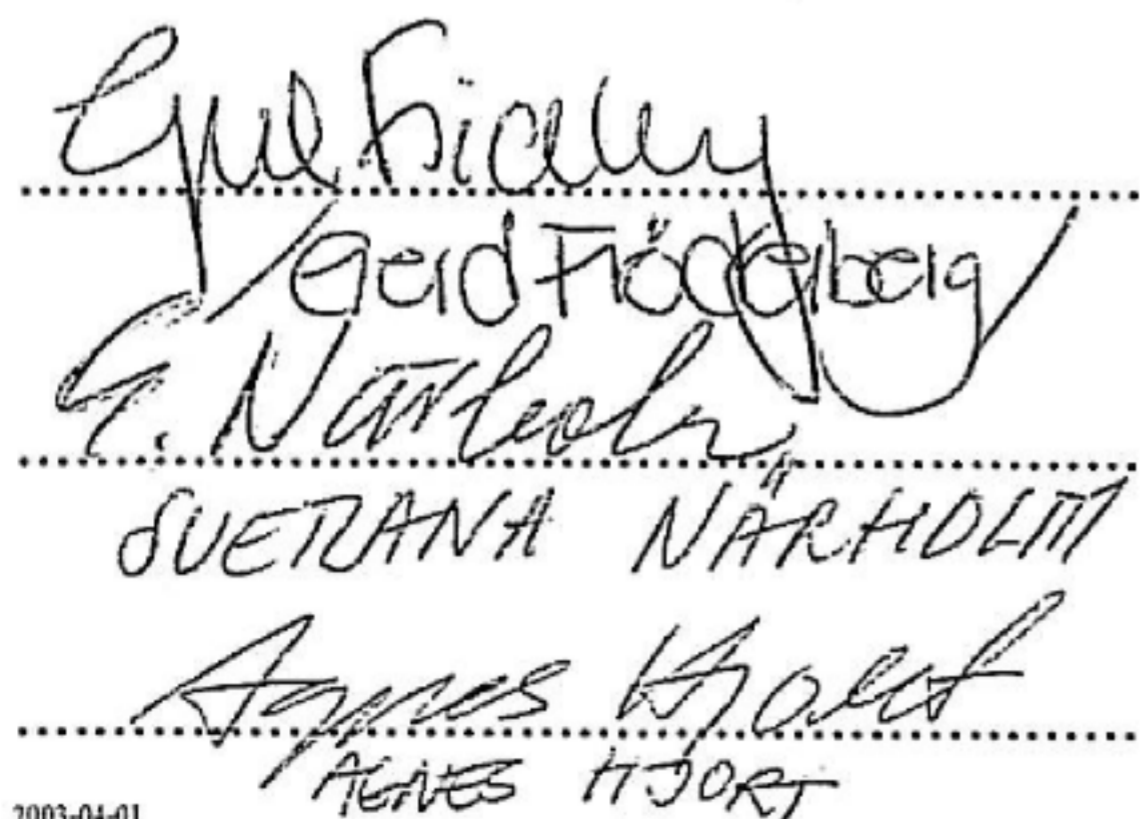 Gerd Fröckerberg
S. Närholm
SVETLANA NÄRHOLM
Agnes Hjort
AGNES HJORT
2003-04-01